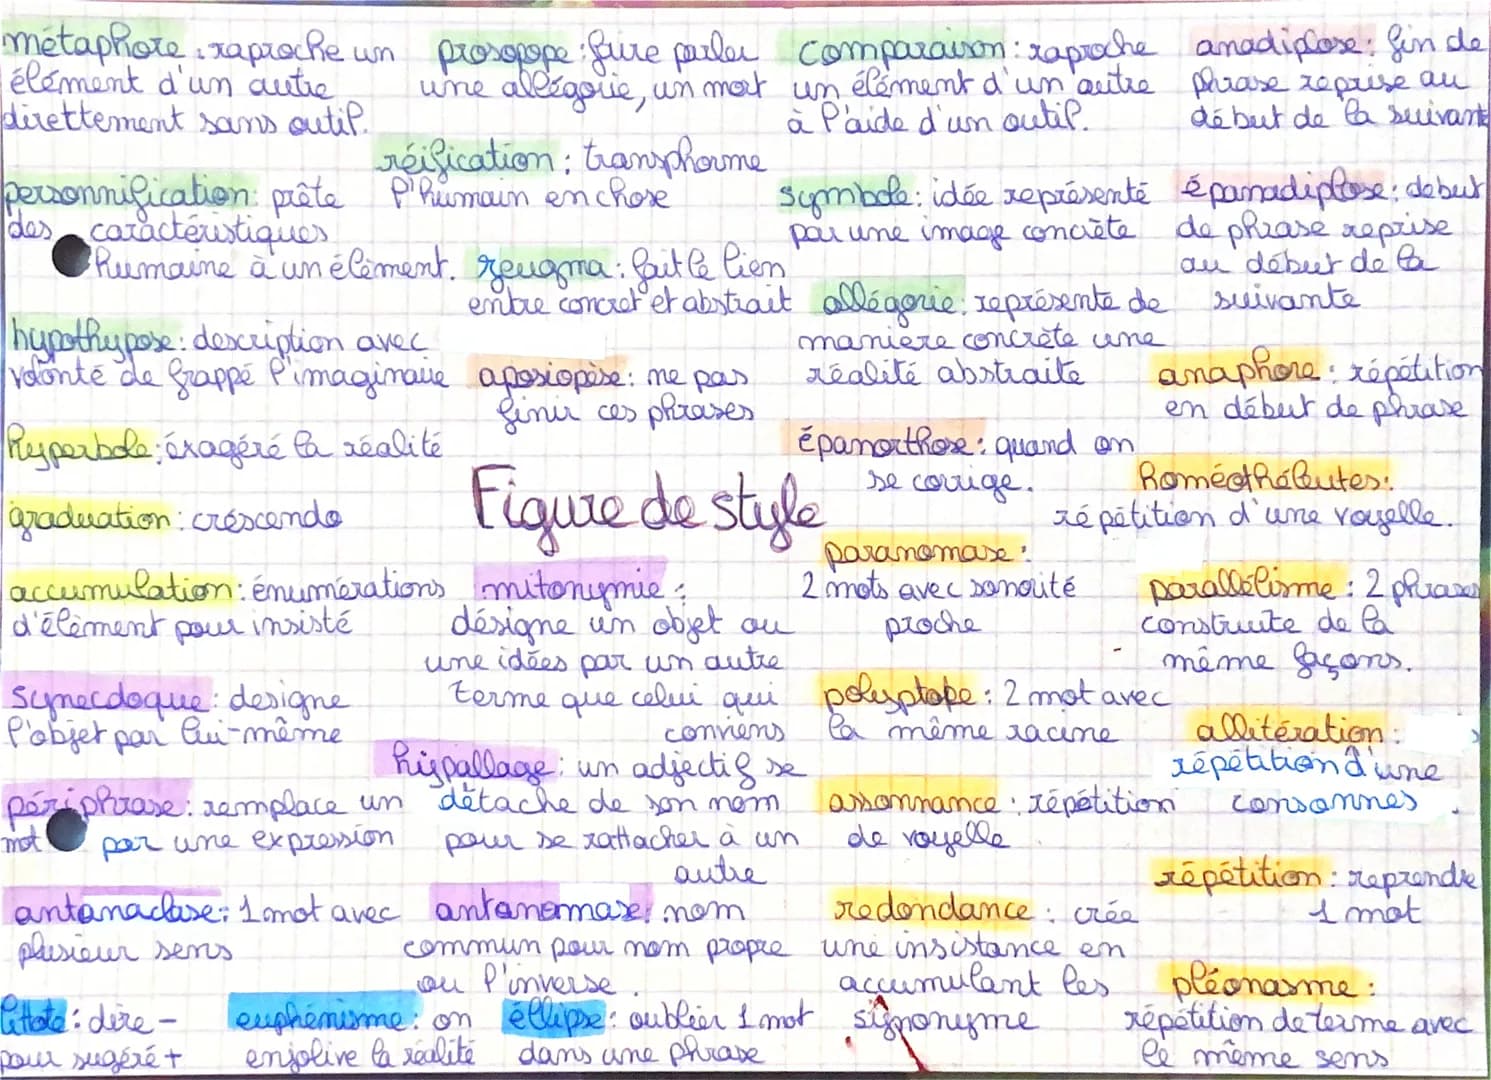 métaphore : raproche un
élément d'un autre
direttement sans outil.
personnification : prête
des caractéristiques
humaine à un élèment.
hypothypose : description avec
volonté de frappé l'imaginaire
hyperbole : éxagéré la réalité
graduation : créscendo
accumulation : énumérations
d'élèment pour insisté
synecdoque : designe
l'objet par lui-même
périphrase : remplace un
mot par une expression
antanaclase : 1 mot avec
plusieur sens
litote : dire -
pour sugéré +
prosopope : faire parler
une allégorie, un mort
réification : transphorme
l'humain en chose
zeugma : fait le lien
entre concret et abstrait
aposiopèse : ne pas
finir ces phrases
Figure de style
mitonymie :
désigne un objet ou
une idées par un autre
terme que celui qui
conviens
hispallage : un adjectif se
détache de son nom
pour se rattacher à un
autre
antanomase : nom
commun pour nom propre
ou l'inverse.
euphémisme : on
enjolive la réalité
éllipse : oublier 1 mot
dans une phrase
comparaison : raproche
un élément d'un autre
à l'aide d'un outil.
symbole : idée représenté
par une image concrète
allégorie : représente de
manière concrète une
réalité abstraite
épanorthose : quand on
se corrige.
paranomase :
2 mots avec sonorité
proche
polyptope : 2 mot avec
la même racine
assonnance : répétition
de voyelle
redondance : crée
une insistance en
accumulant les
signonyme
anadiplose : fin de
phrase reprise au
début de la suivant
épanadiplose : debut
de phrase reprise
au début de la
suivante
anaphore : répétition
en début de phrase
homéothéleutes :
répétition d'une voyelle.
parallélisme : 2 phrases
construite de la
même façons.
allitération :
répétition d'une
consonnes
répétition : reprendre
1 mot
pléonasme :
répétition de terme avec
le même sens